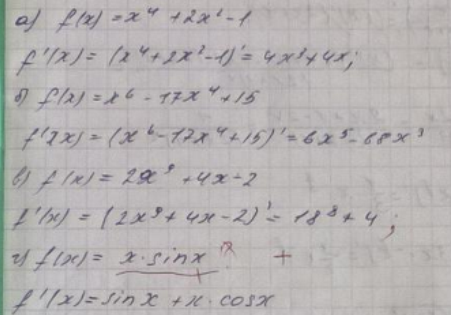 а) f(x) = x⁴ + 2x² - 1
f'(x) = (x⁴ + 2x² - 1)' = 4x³ + 4x;
б) f(x) = x⁶ - 17x⁴ + 15
f'2x) = (x⁶ - 17x⁴ + 15)' = 6x⁵ - 68x³
в) f(x) = 2x⁹ + 4x - 2
f'(x) = (2x⁹ + 4x - 2)' = 18⁸ + 4;
г) f(x) = x · sinx ? +
f'(x) = sinx + x · cosx